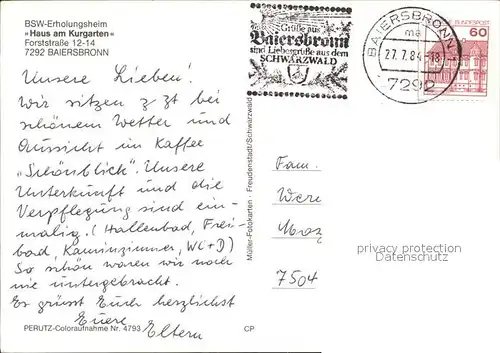 BSW-Erholungsheim
»Haus am Kurgarten«
Forststraße 12-14
7292 BAIERSBRONN
Grüße aus
Baiersbronn
sind Liebesgrüße aus dem
SCHWARZWALD
BAIERSBRONN 1
ma
27.7.84-18
7292
DEUTSCHE BUNDESPOST
60
Unsere Lieben!
Wir sitzen z Zt bei
schönem Wetter und
Aussicht im Kaffee
"Schönblick". Unsere
Unterkunft und die
Verpflegung sind ein-
malig. (Hallenbad, Frei-
bad, Kaminzimmer, WC+D)
So schön waren wir noch
nie untergebracht.
Es grüsst Euch herzlichst
Euere
Eltern
PERUTZ-Coloraufnahme Nr. 4793
CP
Müller-Fotokarten · Freudenstadt/Schwarzwald
Fam.
Were
7504
privacy protection
Datenschutz